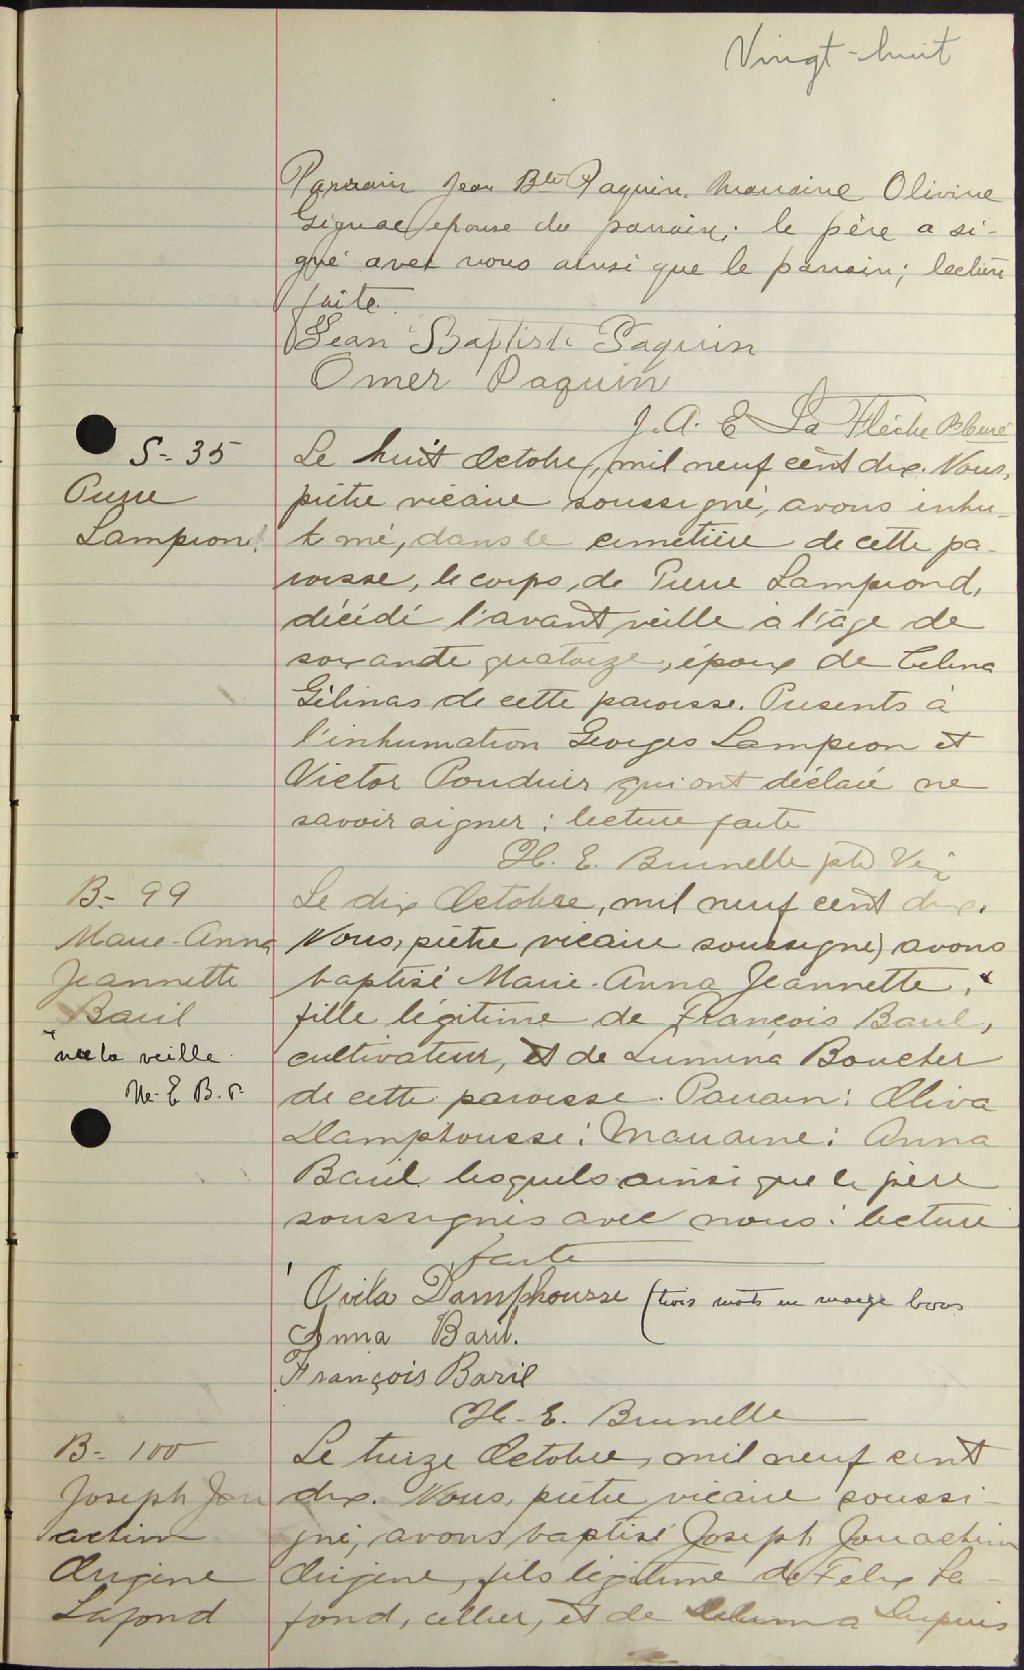 Vingt-huit
Parrain Jean Bte Paquin. Marraine Olivine
Gignac épouse du parrain; le père a si-
gné avec nous ainsi que le parrain; lecture
faite.
Jean Baptiste Paquin
Omer Paquin
J. A. E La Flèche
S- 35
Pierre
Lampron
Le huit Octobre, mil neuf cent dix. Nous,
prêtre vicaire soussigné, avons inhu-
mé, dans le cimetière de cette pa-
roisse, le corps, de Pierre Lamprond,
décédé l'avant veille à l'âge de
soixante quatorze, époux de Celina
Gélinas de cette paroisse. Présents à
l'inhumation Georges Lampron et
Victor qui ont déclaré ne
savoir signer : lecture faite
H. E. Brunelle ptre Vic
B- 99
Marie-Anna
Jeannette
Baril
x née la veille
H-E B. p.
Le dix Octobre, mil neuf cent dix.
Nous, prêtre vicaire soussigné, avons
baptisé Marie-Anna Jeannette, x
fille légitime de François Baril,
cultivateur, et de Lumina Boucher
de cette paroisse. Parrain: Oliva
Damphousse: Marraine: Anna
Baril lesquels ainsi que le père
soussignés avec nous: lecture
faite
Ovila Damphousse (trois mots en marge bons
Anna Baril.
François Baril
H-E. Brunelle
B- 100
Joseph Jou
achim
Origène
Lafond
Le treize Octobre, mil neuf cent
dix. Nous, prêtre vicaire soussi-
gné, avons baptisé Joseph Jouachim
Origène, fils légitime de Felix La-
fond, sellier, et de Dupuis